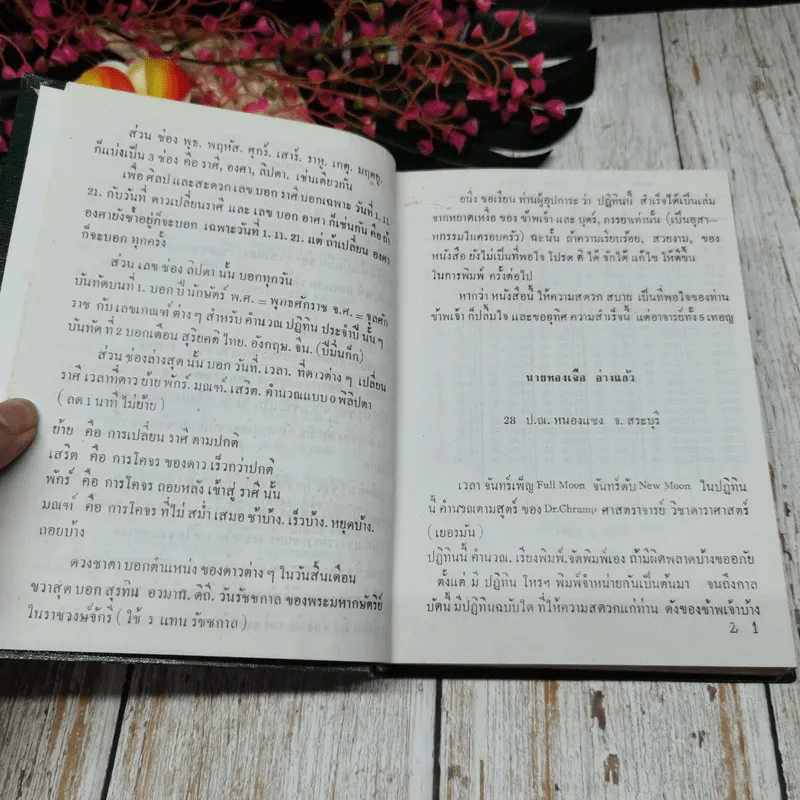 ส่วน ช่อง พุธ. พฤหัส. ศุกร์. เสาร์. ราหู. เกตุ. มฤตยู.
ก็แบ่งเป็น 3 ช่อง คือ ราศี, องศา, ลิปดา. เช่นเดียวกัน
เพื่อ ศิลป และสะดวก เลข บอก ราศี บอกเฉพาะ วันที่ 1. 11.
21. กับวันที่ ดาวเปลี่ยนราศี และ เลข บอก อาศา ก็เช่นกัน คือ ถ้า
องศายังซ้ำอยู่ก็จะบอก เฉพาะวันที่ 1. 11. 21. แต่ ถ้าเปลี่ยน องศา
ก็จะบอก ทุกครั้ง
ส่วน เลข ช่อง ลิปดา นั้น บอกทุกวัน
บันทัดบนที่ 1. บอก ปี นักษัตร์ พ.ศ. = พุทธศักราช จ.ศ. = จุลศัก
ราช กับเลขเกณฑ์ ต่าง ๆ สำหรับ คำนวณ ปฏิทิน ประจำปี นั้น ๆ
บันทัด ที่ 2 บอกเดือน สุริยคติ ไทย. อังกฤษ. จีน. (ปีมื่นก๊ก)
ส่วน ช่องล่างสุด นั้น บอก วันที่. เวลา. ที่ดาวต่าง ๆ เปลี่ยน
ราศี เวลาที่ดาว ย้าย พักร์. มณฑ์. เสริต. คำนวณแบบ 0 พิลิปดา
( ลด 1 นาที ไม่ย้าย )
ย้าย คือ การเปลี่ยน ราศี ตามปกติ
เสริต คือ การโคจร ของดาว เร็วกว่าปกติ
พักร์ คือ การโคจร ถอยหลัง เข้าสู่ ราศี นั้น
มณฑ์ คือ การโคจร ที่ไม่ สม่ำ เสมอ ช้าบ้าง. เร็วบ้าง. หยุดบ้าง.
ถอยบ้าง
ดวงชาตา บอกตำแหน่ง ของดาวต่าง ๆ ในวันสิ้นเดือน
ขวาสุด บอก สุรทิน อวมาณ. ดิถี. วันรัชชกาล ของพระมหากษัตริย์
ในราชวงษ์จักรี ( ใช้ ร แทน รัชชกาล )
อนึ่ง ขอเรียน ท่านผู้อุปการะ ว่า ปฏิทินนี้ สำเร็จได้เป็นเล่ม
จากหยาดเหงื่อ ของ ข้าพเจ้า และ บุตร์, ภรรยาเท่านั้น (เป็นอุสา-
หกรรมในครอบครัว) ฉะนั้น ถ้าความเรียบร้อย, สวยงาม, ของ
หนังสือ ยังไม่เป็นที่พอใจ โปรด ติ ได้ จักได้ แก้ไข ให้ดีขึ้น
ในการพิมพ์ ครั้งต่อไป
หากว่า หนังสือนี้ ให้ความสดวก สบาย เป็นที่พอใจของท่าน
ข้าพเจ้า ก็ปลื้มใจ และขออุทิศ ความสำเร็จนี้ แด่อาจารย์ทั้ง 5 เทอญ
นายทองเจือ อ่างแล้ว
28 ป.ณ. หนองแซง จ. สระบุรี
เวลา จันทร์เพ็ญ Full Moon จันทร์ดับ New Moon ในปฏิทิน
นี้ คำนวณตามสูตร์ ของ Dr.Chrump ศาสตราจารย์ วิชาดาราศาสตร์
(เยอรมัน)
ปฏิทินนี้ คำนวณ. เรียงพิมพ์.จัดพิมพ์เอง ถ้ามีผิดพลาดบ้างขออภัย
ตั้งแต่ มี ปฏิทิน โหรฯ พิมพ์จำหน่ายกันเป็นต้นมา จนถึงกาล
บัดนี้ มีปฏิทินฉบับใด ที่ให้ความสดวกแก่ท่าน ดังของข้าพเจ้าบ้าง
2 1